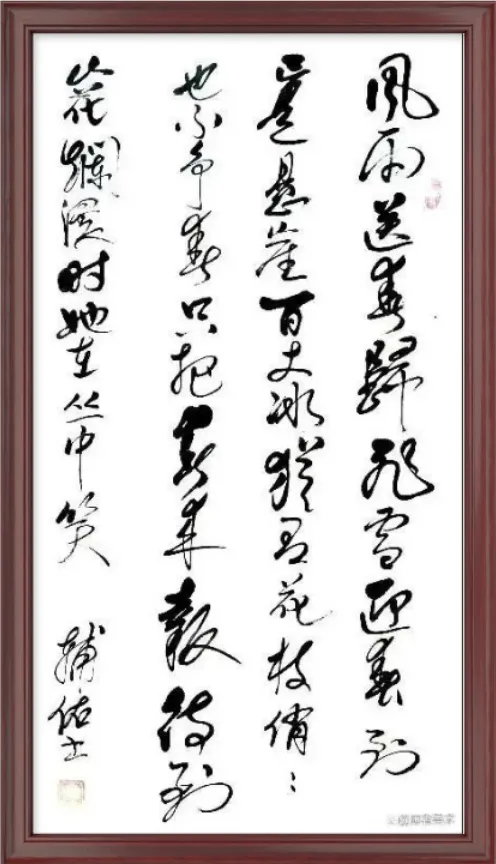 風雨送春歸飛雪迎春到
已是悬崖百丈冰猶有花枝俏〻
也不争春只把春来報待到
山花爛漫时她在丛中笑